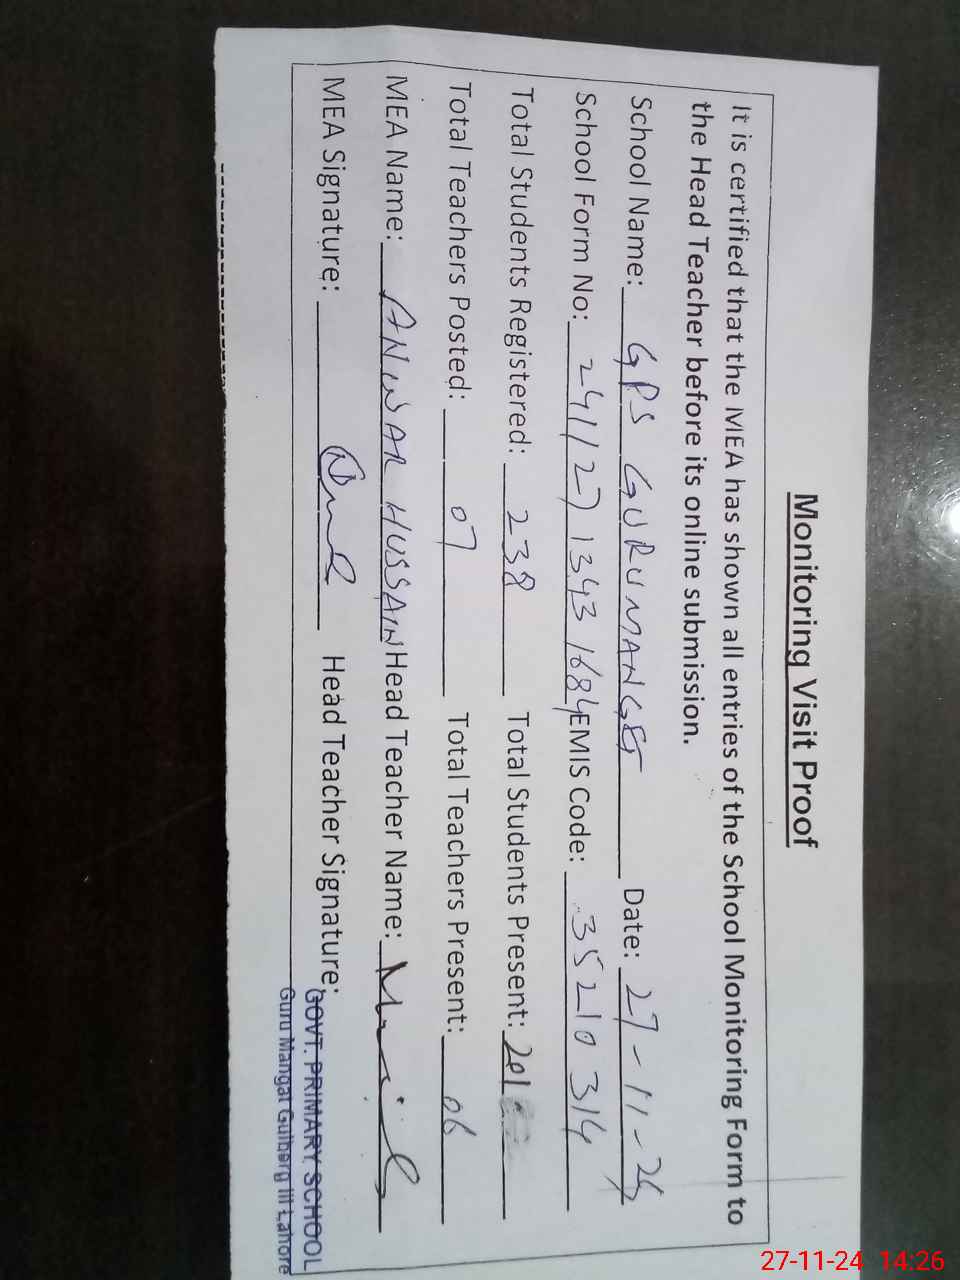 Monitoring Visit Proof
It is certified that the MEA has shown all entries of the School Monitoring Form to
the Head Teacher before its online submission.
School Name: GPS GURUMANGET Date: 27-11-24
School Form No: 241127 1343 1684 EMIS Code: 35210314
Total Students Registered: 238 Total Students Present: 201
Total Teachers Posted: 07 Total Teachers Present: 06
MEA Name: ANWAR HUSSAIN Head Teacher Name:
MEA Signature: Head Teacher Signature:
GOVT. PRIMARY SCHOOL
Guru Mangat Gulberg III Lahore
27-11-24 14:26